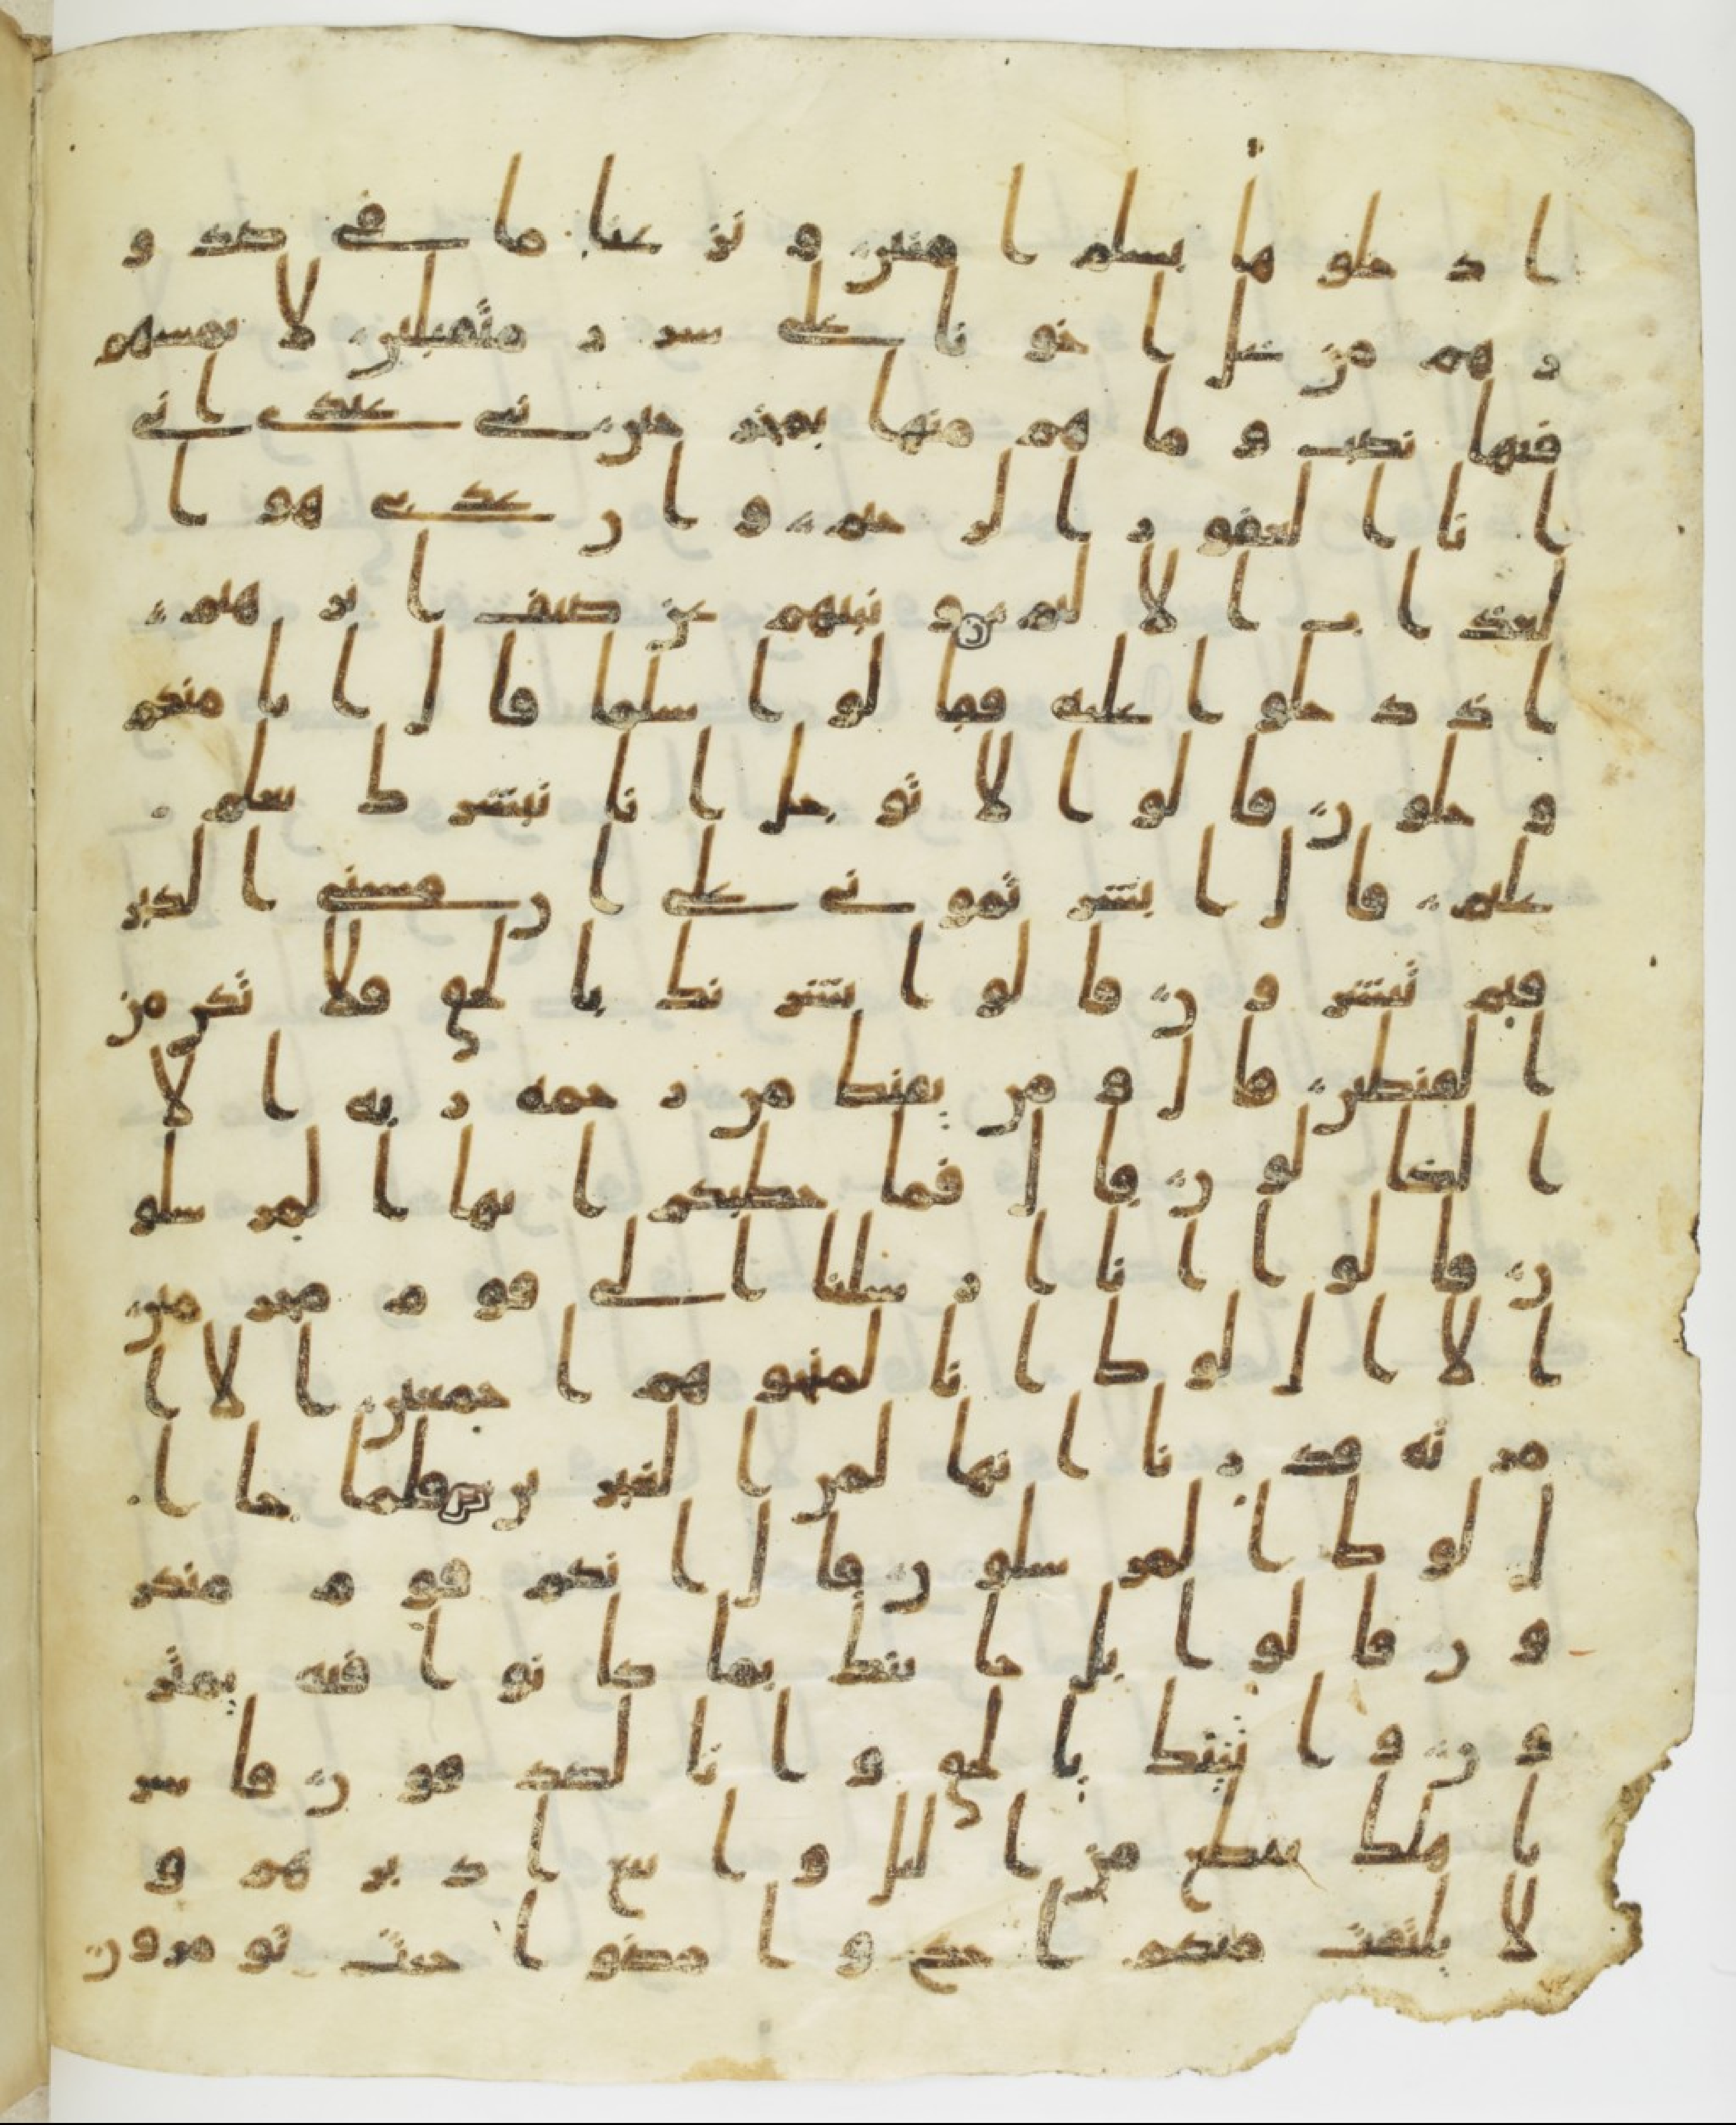 ادخلوها بسلم امنين ونزعنا ما في صدو
رهم من غل اخونا على سرر متقبلين لا يمسهم
فيها نصب وما هم منها بمخرجين نبى عبدى انى
انا الغفور الرحيم وان عذبى هو ا
لعذاب الاليم ونبيهم عن ضيف ابرهيم
اذ دخلوا عليه فقالوا سلما قال انا منكم
وجلون قالوا لا توجل انا نبشرك بغلم
عليم قال ابشرتمونى على ان مسنى الكبر
فبم تبشرون قالوا بشرنك بالحق فلا تكن من
القنطين قال ومن يقنط من رحمه ربه الا
الضالون قال فما خطبكم ايها المرسلو
ن قالوا انا ارسلنا الى قوم مجرمين
الا ال لوط انا لمنجوهم اجمعين الا ا
مرته قدرنا انها لمن الغبرين فلما جا ا
ل لوط المرسلون قال انكم قوم منكر
ون قالوا بل جاينك بما كانوا فيه يمتر
ون واتينك بالحق وانا لصدقون فاسر
باهلك بقطع من اليل واتبع ادبرهم و
لا يلتفت منكم احد وامضوا حيث تومرون